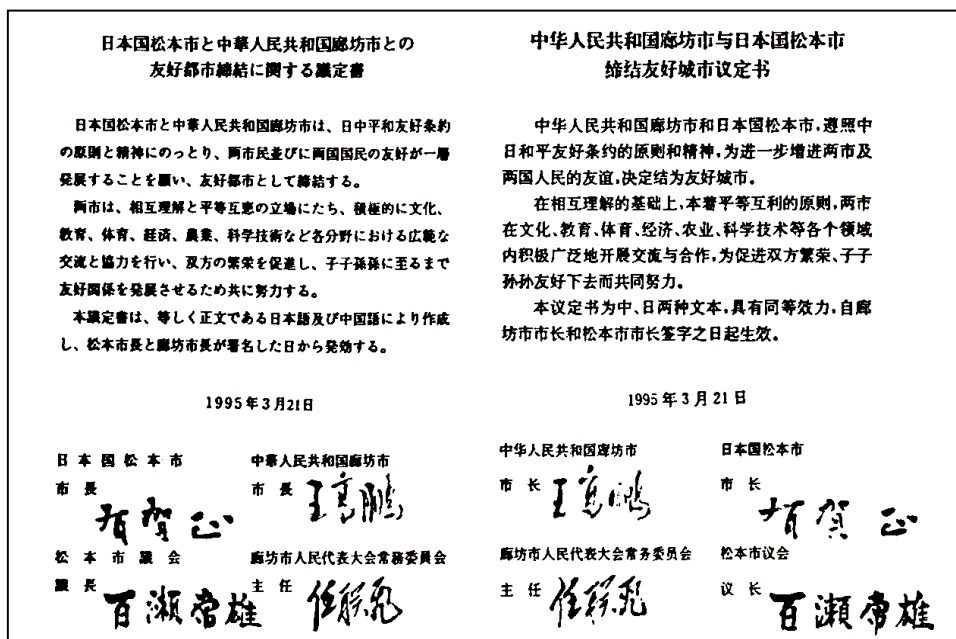 日本国松本市と中華人民共和国廊坊市との
友好都市締結に関する議定書
日本国松本市と中華人民共和国廊坊市は、日中平和友好条約
の原則と精神にのっとり、両市民並びに両国国民の友好が一層
発展することを願い、友好都市として締結する。
両市は、相互理解と平等互恵の立場にたち、積極的に文化、
教育、体育、経済、農業、科学技術など各分野における広範な
交流と協力を行い、双方の繁栄を促進し、子子孫孫に至るまで
友好関係を発展させるため共に努力する。
本議定書は、等しく正文である日本語及び中国語により作成
し、松本市長と廊坊市長が署名した日から発効する。
1995年3月21日
日本国松本市 中華人民共和国廊坊市
市長 有賀正 市長
松本市議会 廊坊市人民代表大会常務委員会
議長 百瀬常雄 主任
中华人民共和国廊坊市与日本国松本市
缔结友好城市议定书
中华人民共和国廊坊市和日本国松本市,遵照中
日和平友好条约的原则和精神,为进一步增进两市及
两国人民的友谊,决定结为友好城市。
在相互理解的基础上,本着平等互利的原则,两市
在文化、教育、体育、经济、农业、科学技术等各个领域
内积极广泛地开展交流与合作,为促进双方繁荣、子子
孙孙友好下去而共同努力。
本议定书为中、日两种文本,具有同等效力,自廊
坊市市长和松本市市长签字之日起生效。
1995年3月21日
中华人民共和国廊坊市 日本国松本市
市长 市长 有賀正
廊坊市人民代表大会常务委员会 松本市议会
主任 议长 百瀬常雄